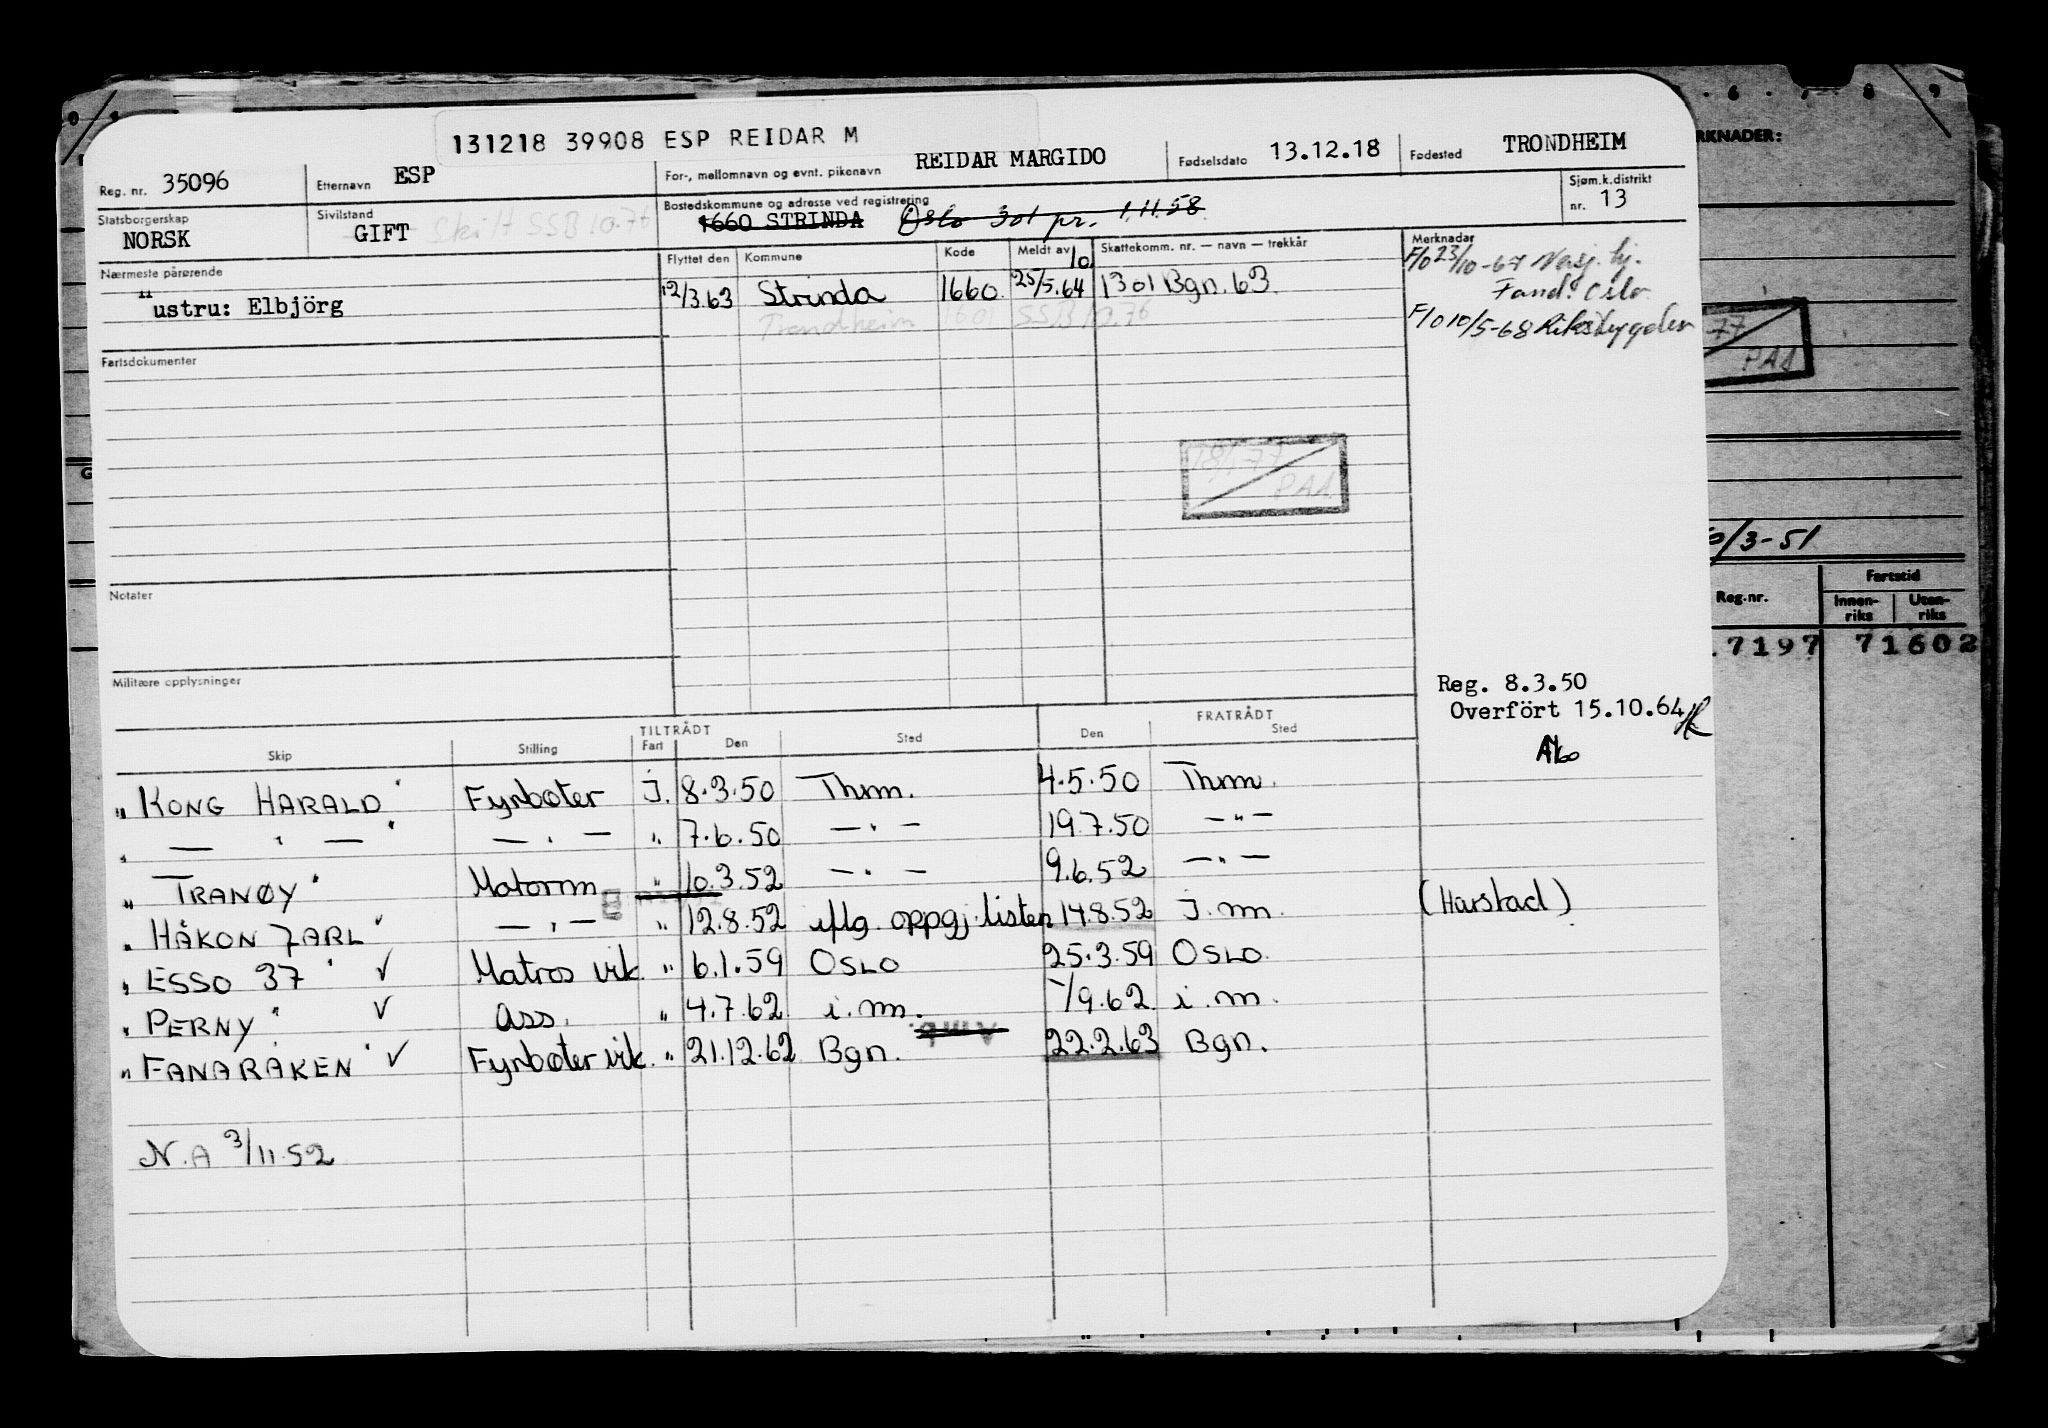 131218 39908 ESP REIDAR M
Reg. nr. 35096 Etternavn ESP For-, mellomnavn og evnt. pikenavn REIDAR MARGIDO Fødselsdato 13.12.18 Fødested TRONDHEIM
Statsborgerskap NORSK Sivilstand GIFT Skilt SSB 10.76 Bostedskommune og adresse ved registrering 1660 STRINDA Oslo 301 pr. 1.11.58 Sjøm.k.distrikt nr. 13
Nærmeste pårørende
Hustru: Elbjörg
Flyttet den Kommune Kode Meldt av Skattekomm. nr. — navn — trekkår Merknader
12/3.63 Strinda 1660 25/5.64 1301 Bgn. 63
Trondheim 1601 SSB 10.76
F/o 23/10-67
Oslo
F/o 10/5-68
Fartsdokumenter
18/1-77
PAA
Notater
Militære opplysninger
Reg. 8.3.50
Overfört 15.10.64
TILTRÅDT FRATRÅDT
Skip Stilling Fart Den Sted Den Sted
" KONG HARALD " Fyrbøter J. 8.3.50 Thm. 4.5.50 Thm.
" — " — " — " — " 7.6.50 — " — 19.7.50 — " —
" TRANØY " Matorm " 10.3.52 — " — 9.6.52 — " —
" HÅKON JARL " — " — " 12.8.52 iflg. oppgj.listen 14.8.52 J. m. (Harstad)
" ESSO 37 " ✓ Matros vik. " 6.1.59 OSLO 25.3.59 OSLO.
" PERNY " ✓ Ass. " 4.7.62 i. m. -/9.62 i. m.
" FANARÅKEN " ✓ Fyrbøter vik. " 21.12.62 Bgn. 22.2.63 Bgn.
N.A 3/11.52
6 7 8 9
RKNADER:
77
PAA
/3-51
Reg.nr. Fartstid
Innen-riks Uten-riks
7197 71602